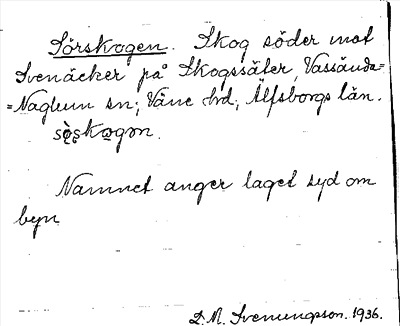 Sörskogen. Skog söder mot
Svenåcker på Skogssäter, Vassända=
=Naglum sn; Väne hd; Älfsborgs län.
sö̀ʂkogən.
Namnet anger läget syd om
byn
D. M. Svenungsson. 1936.